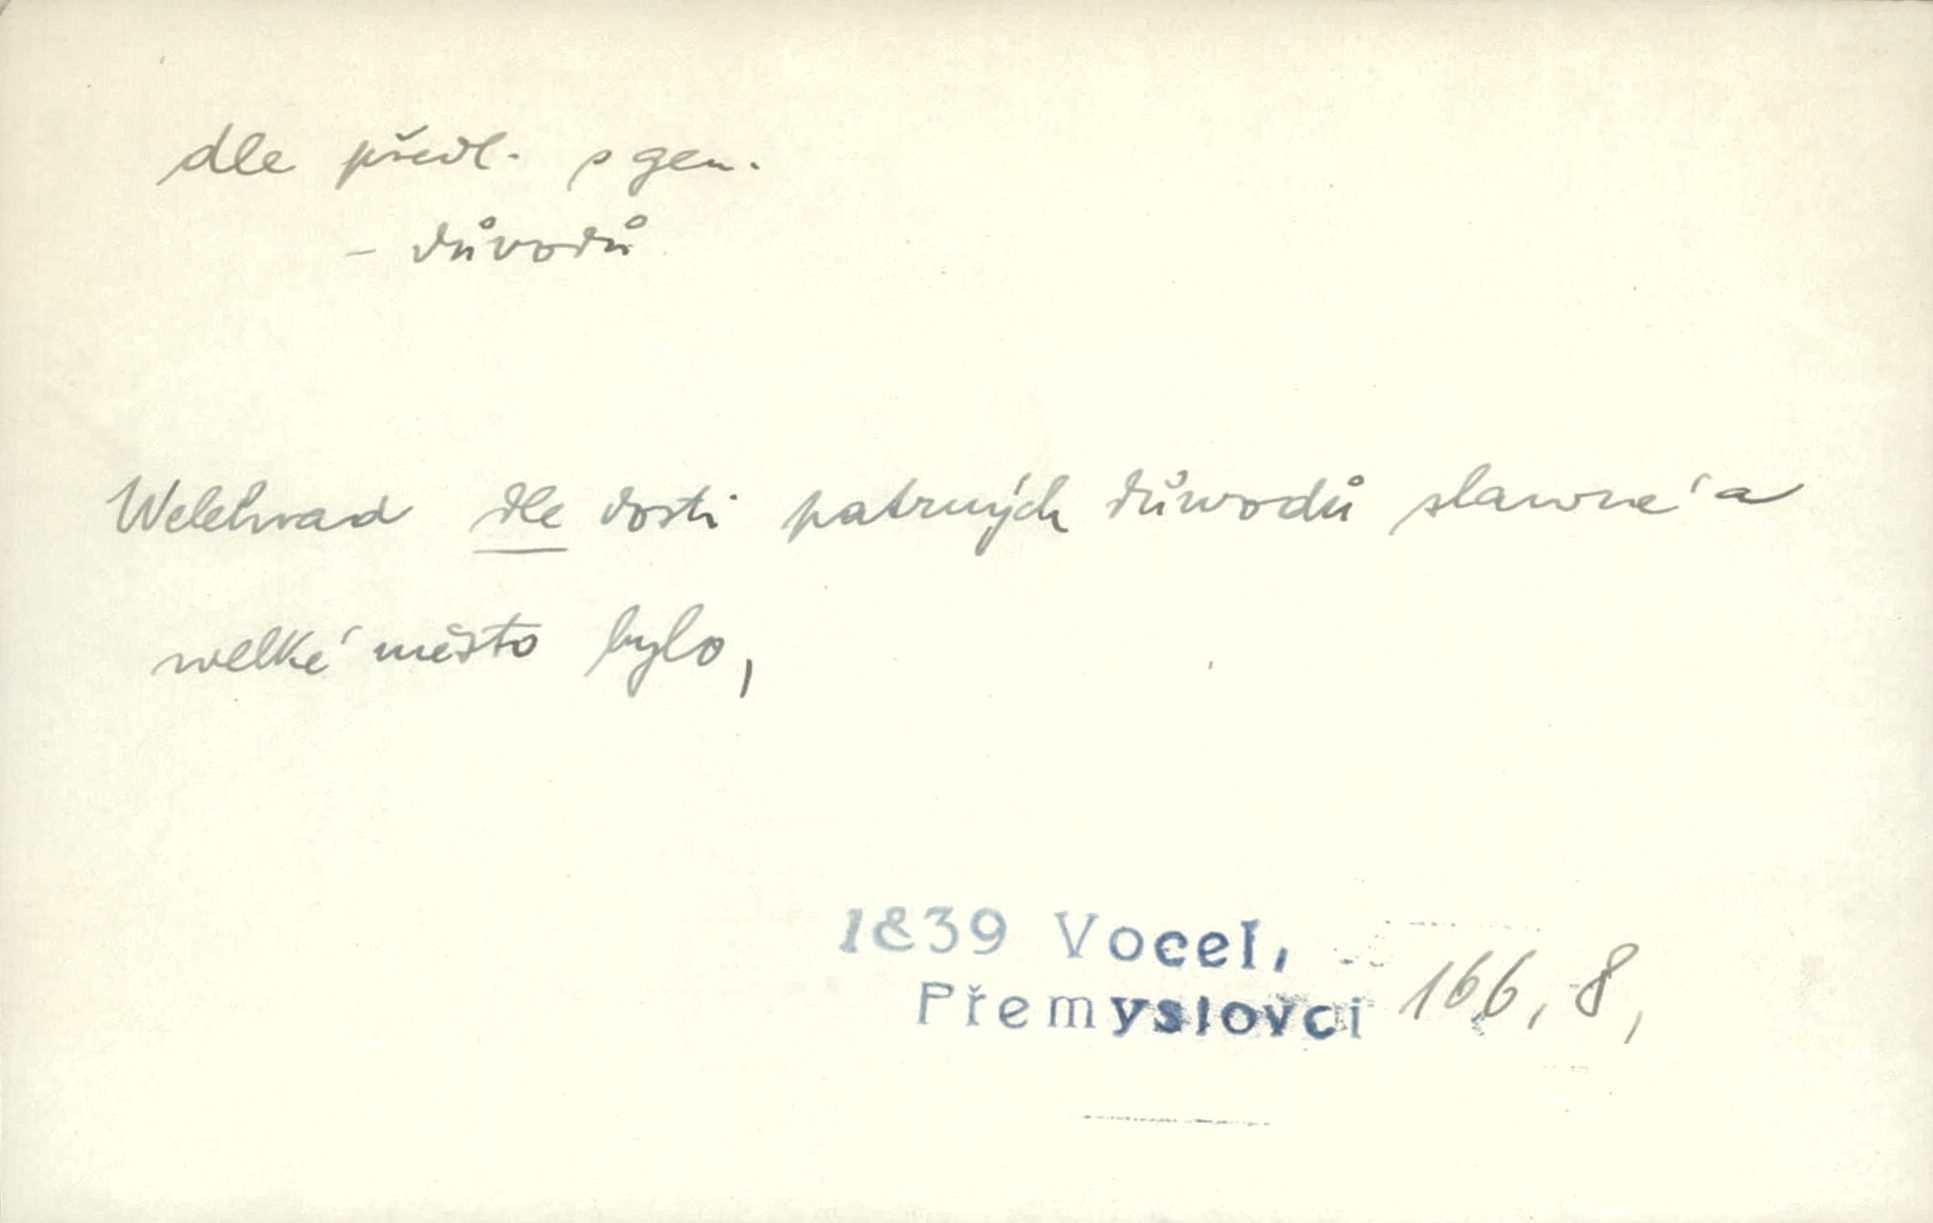 dle předl. s gen.
– důvodů
Welehrad dle dosti patrných důwodů slawné a
welké město bylo,
1839 Vocel,
Přemyslovci 166, 8,